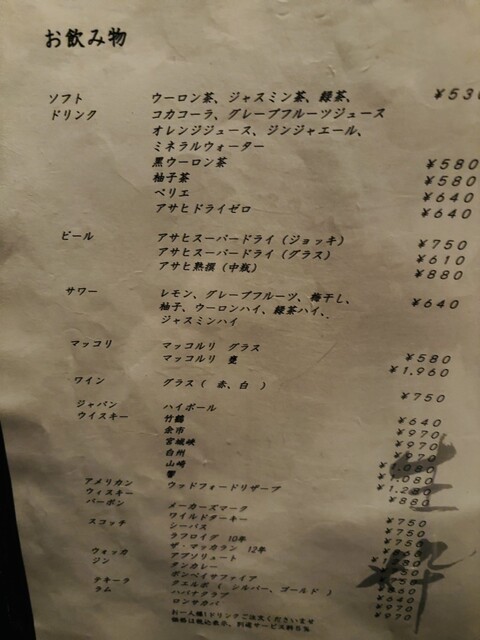 お飲み物
ソフト ウーロン茶、ジャスミン茶、緑茶、 ¥530
ドリンク コカコーラ、グレープフルーツジュース
オレンジジュース、ジンジャエール、
ミネラルウォーター
黒ウーロン茶 ¥580
柚子茶 ¥580
ペリエ ¥640
アサヒドライゼロ ¥640
ビール アサヒスーパードライ(ジョッキ) ¥750
アサヒスーパードライ(グラス) ¥610
アサヒ熟撰(中瓶) ¥880
サワー レモン、グレープフルーツ、梅干し、 ¥640
柚子、ウーロンハイ、緑茶ハイ、
ジャスミンハイ
マッコリ マッコルリ グラス ¥580
マッコルリ 甕 ¥1,960
ワイン グラス( 赤、白 ) ¥750
ジャパン ハイボール ¥640
ウイスキー 竹鶴 ¥970
余市 ¥970
宮城峡 ¥970
白州 ¥1,080
山崎 ¥1,080
響 ¥1,280
アメリカン ウッドフォードリザーブ ¥880
ウィスキー
バーボン メーカーズマーク ¥750
ワイルドターキー ¥750
スコッチ シーバス ¥750
ラフロイグ 10年
ザ・マッカラン 12年
ウォッカ アブソリュート
ジン タンカレー
ボンベイサファイア
テキーラ クエルボ( シルバー、ゴールド )
ラム ハバナクラブ
ロンサカパ ¥970
お一人様1ドリンクご注文くださいませ
価格は税込表示、別途サービス料5%
生粋